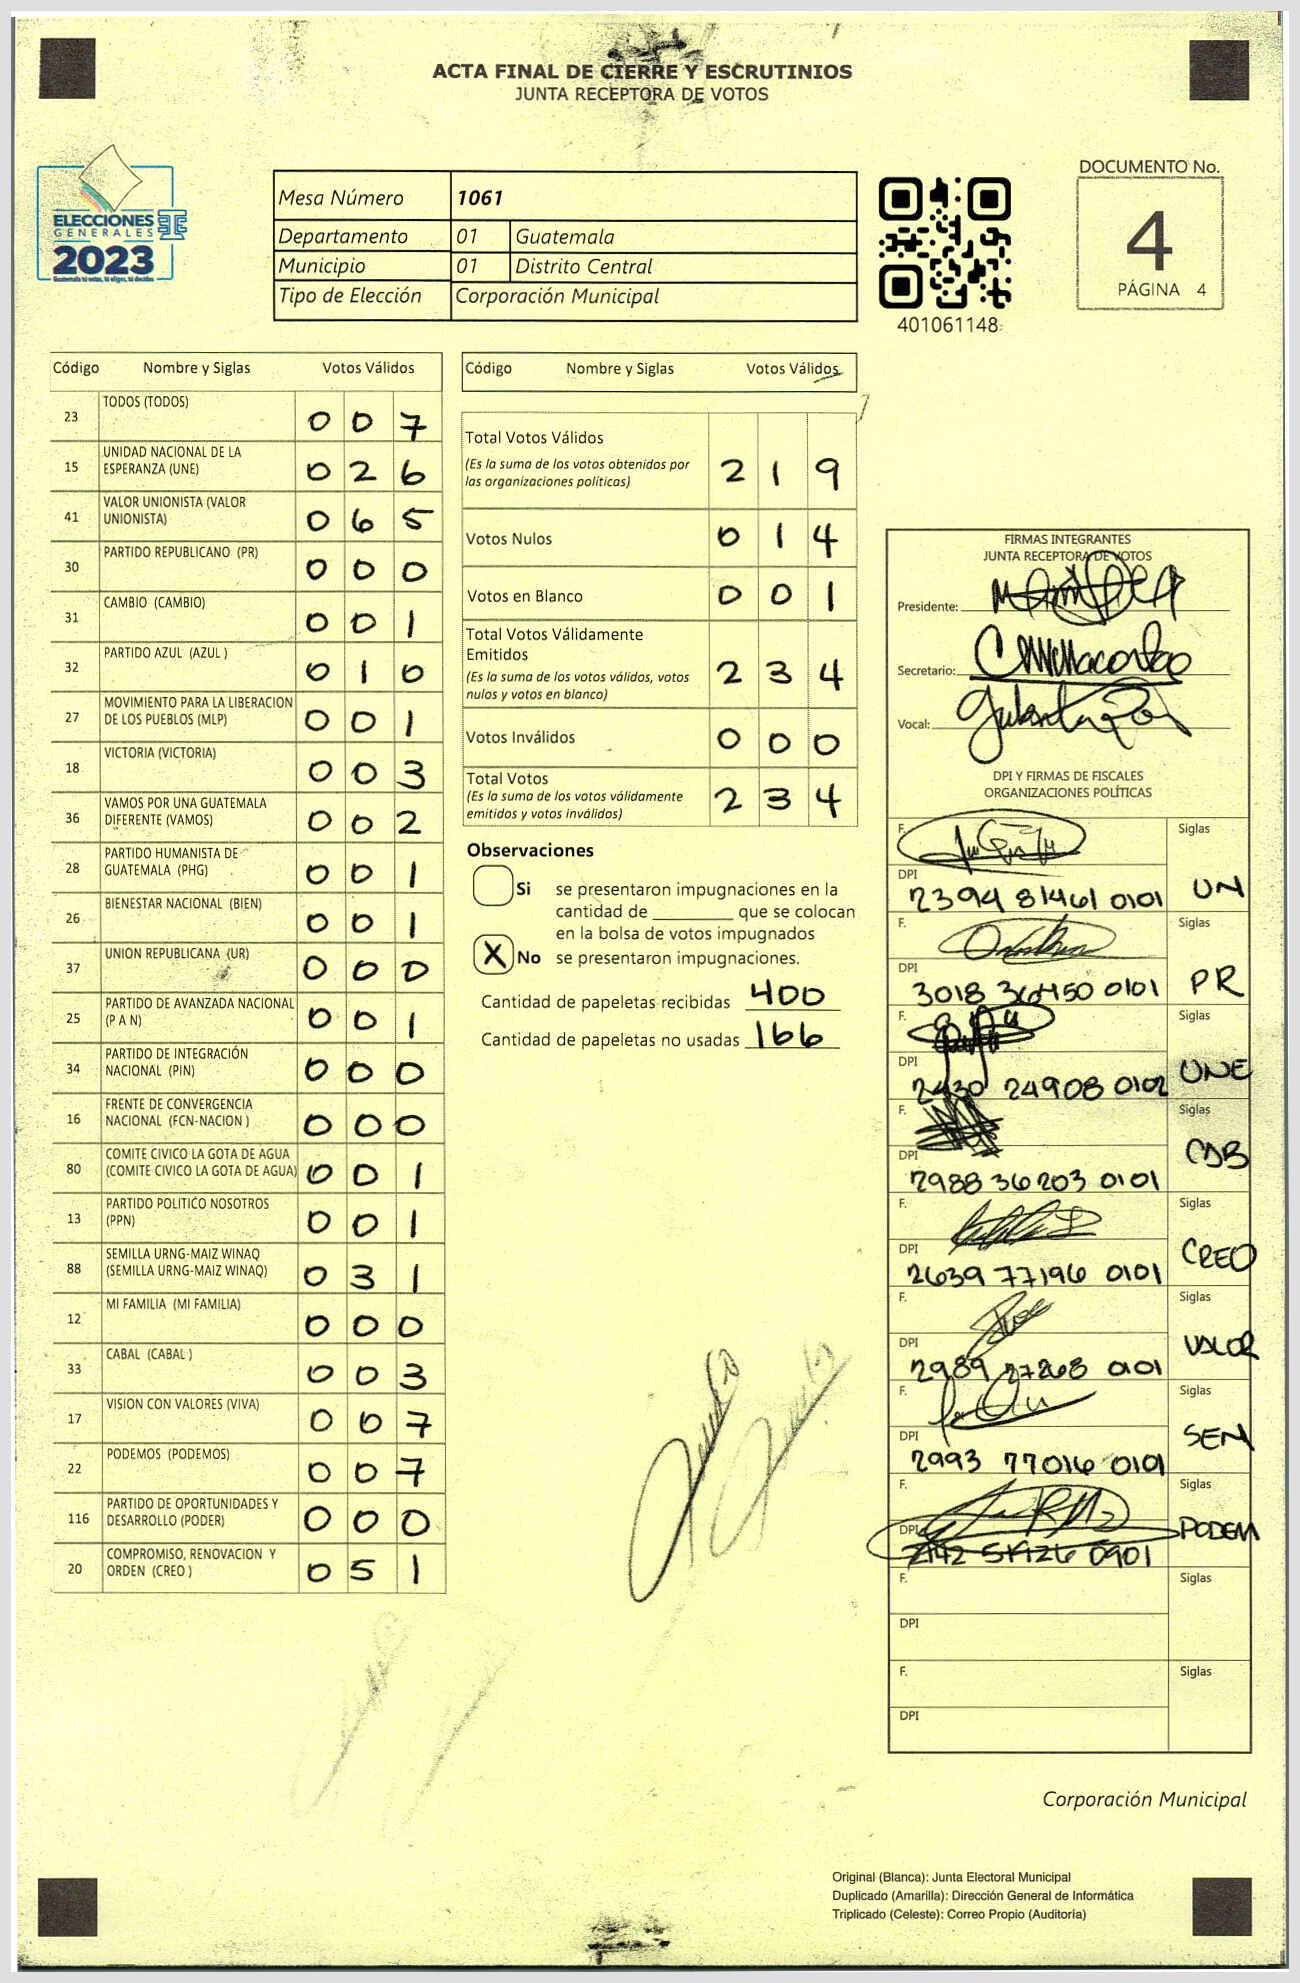 ACTA FINAL DE CIERRE Y ESCRUTINIOS
JUNTA RECEPTORA DE VOTOS
ELECCIONES
GENERALES
2023
Guatemala tú votas, tú eliges, tú decides
Mesa Número 1061
Departamento 01 Guatemala
Municipio 01 Distrito Central
Tipo de Elección Corporación Municipal
401061148
DOCUMENTO No.
4
PÁGINA 4
Código Nombre y Siglas Votos Válidos
23 TODOS (TODOS) 0 0 7
15 UNIDAD NACIONAL DE LA
ESPERANZA (UNE) 0 2 6
41 VALOR UNIONISTA (VALOR
UNIONISTA) 0 6 5
30 PARTIDO REPUBLICANO (PR) 0 0 0
31 CAMBIO (CAMBIO) 0 0 1
32 PARTIDO AZUL (AZUL ) 0 1 0
27 MOVIMIENTO PARA LA LIBERACION
DE LOS PUEBLOS (MLP) 0 0 1
18 VICTORIA (VICTORIA) 0 0 3
36 VAMOS POR UNA GUATEMALA
DIFERENTE (VAMOS) 0 0 2
28 PARTIDO HUMANISTA DE
GUATEMALA (PHG) 0 0 1
26 BIENESTAR NACIONAL (BIEN) 0 0 1
37 UNION REPUBLICANA (UR) 0 0 0
25 PARTIDO DE AVANZADA NACIONAL
(P A N) 0 0 1
34 PARTIDO DE INTEGRACIÓN
NACIONAL (PIN) 0 0 0
16 FRENTE DE CONVERGENCIA
NACIONAL (FCN-NACION ) 0 0 0
80 COMITE CIVICO LA GOTA DE AGUA
(COMITE CIVICO LA GOTA DE AGUA) 0 0 1
13 PARTIDO POLITICO NOSOTROS
(PPN) 0 0 1
88 SEMILLA URNG-MAIZ WINAQ
(SEMILLA URNG-MAIZ WINAQ) 0 3 1
12 MI FAMILIA (MI FAMILIA) 0 0 0
33 CABAL (CABAL ) 0 0 3
17 VISION CON VALORES (VIVA) 0 0 7
22 PODEMOS (PODEMOS) 0 0 7
116 PARTIDO DE OPORTUNIDADES Y
DESARROLLO (PODER) 0 0 0
20 COMPROMISO, RENOVACION Y
ORDEN (CREO ) 0 5 1
Código Nombre y Siglas Votos Válidos
Total Votos Válidos
(Es la suma de los votos obtenidos por
las organizaciones políticas) 2 1 9
Votos Nulos 0 1 4
Votos en Blanco 0 0 1
Total Votos Válidamente
Emitidos
(Es la suma de los votos válidos, votos
nulos y votos en blanco) 2 3 4
Votos Inválidos 0 0 0
Total Votos
(Es la suma de los votos válidamente
emitidos y votos inválidos) 2 3 4
Observaciones
Si se presentaron impugnaciones en la
cantidad de ________ que se colocan
en la bolsa de votos impugnados
X No se presentaron impugnaciones.
Cantidad de papeletas recibidas 400
Cantidad de papeletas no usadas 166
FIRMAS INTEGRANTES
JUNTA RECEPTORA DE VOTOS
Presidente:
Secretario:
Vocal:
DPI Y FIRMAS DE FISCALES
ORGANIZACIONES POLÍTICAS
F. Siglas
DPI
2394 81461 0101 UN
F. Siglas
DPI
3018 36450 0101 PR
F. Siglas
DPI
2430 24908 0102 UNE
F. Siglas
DPI
2988 36203 0101 CDB
F. Siglas
DPI
2639 77196 0101 CREO
F. Siglas
DPI
2989 27268 0101 VALOR
F. Siglas
DPI
2993 77016 0101 SEM
F. Siglas
DPI
0901 PODEM
F. Siglas
DPI
F. Siglas
DPI
Corporación Municipal
Original (Blanca): Junta Electoral Municipal
Duplicado (Amarilla): Dirección General de Informática
Triplicado (Celeste): Correo Propio (Auditoría)